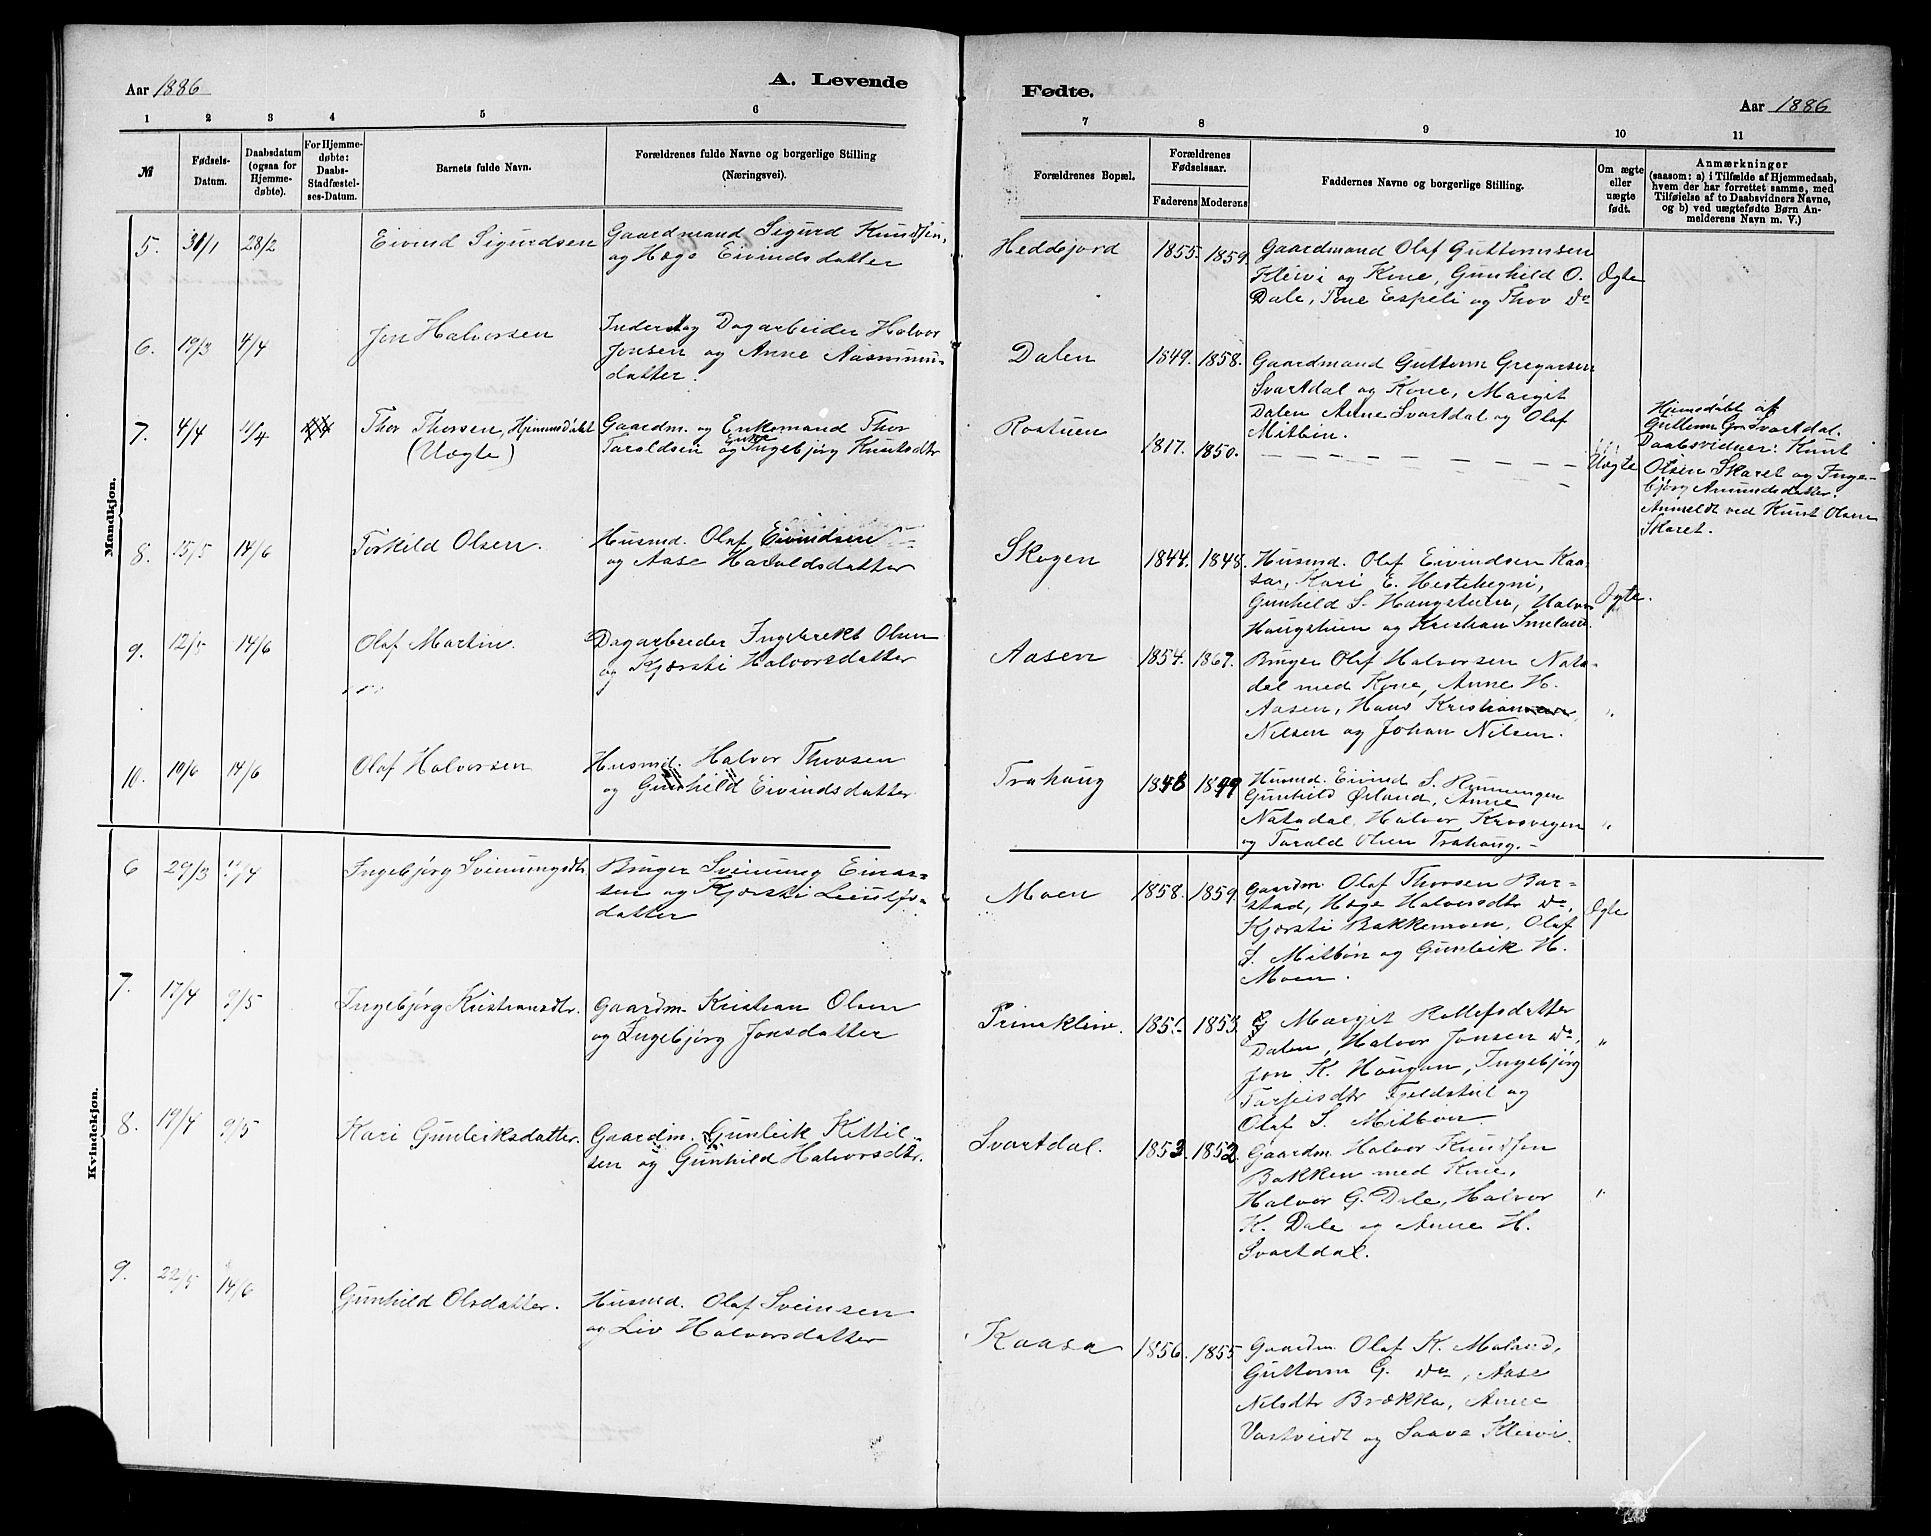 Aar 1886
A. Levende
Fødte.
Aar 1886
1 2 3 4 5 6 7 8 9 10 11
№
Fødsels-
Datum.
Daabsdatum
(ogsaa for
Hjemme-
døbte).
For Hjemme-
døbte:
Daabs-
Stadfæstel-
ses-Datum.
Barnets fulde Navn.
Forældrenes fulde Navne og borgerlige Stilling
(Næringsvei).
Forældrenes Bopæl.
Forældrenes
Fødselsaar.
Faderens Moderens
Faddernes Navne og borgerlige Stilling.
Om ægte
eller
uægte
født.
Anmærkninger
(saasom: a) i Tilfælde af Hjemmedaab,
hvem der har forrettet samme, med
Tilføielse af to Daabsvidners Navne,
og b) ved uægtefødte Børn An-
melderens Navn m. V.)
Mandkjøn.
5. 31/1 28/2
Eivind Sigurdsen
Gaardmand Sigurd Knudsen,
og Hæge Eivindsdatter
Heddejord
1855. 1859.
Gaardmand Olaf Guttormsen
Kleivi og Kone, Gunhild O.
Dale, Tone Espeli og Thov do
Ægte
6. 19/3 4/4
Jon Halvorsen
Inderst og Dagarbeider Halvor
Jonsen og Anne Aasmuns-
datter.
Dalen
1849. 1858.
Gaardmand Guttorm Gregarsen
Svartdal og Kone, Margit
Dalen Anne Svartdal og Olaf
Mitbøn.
7. 4/4 11/4
Thor Thorsen, Hjemmedøbt
(Uægte)
Gaardm. og Enkemand Thor
Taraldsen og Enke Ingebjørg Knutsdtr
Roatuen
1817. 1850.
Uægte
Hjemedøbt af
Guttorm Gr. Svartdal.
Daabsvidner: Knut
Olsen Skaret og Inge-
bjørg Amundsdatter.
Anmeldt ved Knut Olsen
Skaret.
8. 15/5 14/6
Torkild Olsen.
Husmd. Olaf Eivindsen
og Aase Haraldsdatter
Skogen
1844. 1848.
Husmd. Olaf Eivindsen Kaa-
sar, Kari E. Hestehegni,
Gunhild S. Haugstuen, Halvor
Haugstuen og Kristian
Ægte.
9. 12/5 14/6
Olaf Martin.
Dagarbeider Ingebrekt Olsen
og Kjærsti Halvorsdatter
Aasen
1854. 1867.
Bruger Olaf Halvorsen Nata-
dal med Kone, Anne H.
Aasen, Hans Kristiansen,
Nilsen og Johan Nilsen.
"
10. 10/6 14/6
Olaf Halvorsen
Husmd. Halvor Thovsen
og Gunhild Eivindsdatter
Trahaug
1848 1849
Husmd. Eivind S. Runningen
Gunhild Ørland, Anne
Natadal, Halvor Krosvegen
og Tarald Olsen Trahaug.
"
Kvindekjøn.
6 29/3 11/4
Ingebjørg Sveinungsdtr.
Bruger Sveinung Einar-
sen og Kjærsti Leiuljøs-
datter
Moen
1858. 1859.
Gaardm. Olaf Thovsen Bar-
stad, Hæge Halvorsdtr do,
Kjærsti Bakkemoen, Olaf
S. Mitbøn og Gunleik H.
Moen.
Ægte
7. 17/4 9/5
Ingebjørg Kristiansdtr.
Gaardm Kristian Olsen
og Ingebjørg Jonsdatter
1851- 1853.
Margit Rollefsdatter
Dalen, Halvor Jonsen do,
Jon K. Haugan, Ingebjørg
Tarjeisdtr Fjeldstul og
Olaf S. Mitbøn.
"
8. 19/4 9/5
Kari Gunleiksdatter.
Gaardm. Gunleik Kittil-
sen og Gunhild Halvorsdtr.
Svartdal.
1853. 1852.
Gaardm. Halvor Knudsen
Bakken med Kone,
Halvor G. Dale, Halvor
K. Dale og Anne H.
Svartdal.
"
9. 22/5 14/6
Gunhild Olsdatter.
Husmd. Olaf Sveinsen
og Liv Halvorsdatter
Kaasa
1856. 1855
Gaardm. Olaf K. Moland,
Guttorm G. do, Aase
Nilsdtr Brække, Anne
Vastveidt og Saave Kleivi.